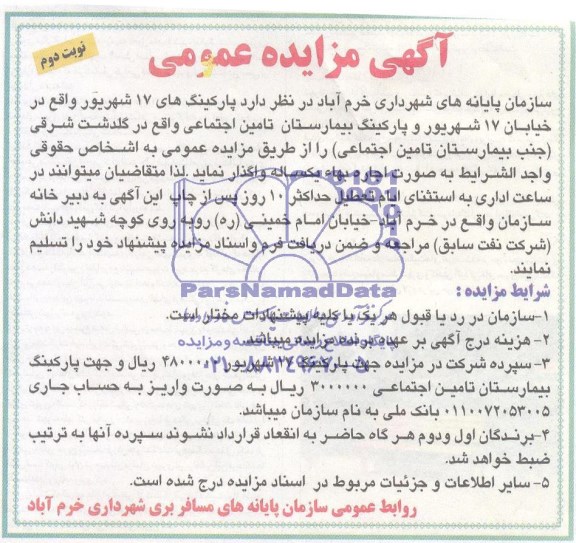 آگهی مزایده عمومی
نوبت دوم
سازمان پایانه های شهرداری خرم آباد در نظر دارد پارکینگ های ۱۷ شهریور واقع در
خیابان ۱۷ شهریور و پارکینگ بیمارستان تامین اجتماعی واقع در گلدشت شرقی
(جنب بیمارستان تامین اجتماعی) را از طریق مزایده عمومی به اشخاص حقوقی
واجد الشرایط به صورت اجاره بهاء یکساله واگذار نماید .لذا متقاضیان میتوانند در
ساعت اداری به استثنای ایام تعطیل حداکثر ۱۰ روز پس از چاپ این آگهی به دبیر خانه
سازمان واقع در خرم آباد-خیابان امام خمینی (ره) روبه روی کوچه شهید دانش
(شرکت نفت سابق) مراجعه و ضمن دریافت فرم واسناد مزایده پیشنهاد خود را تسلیم
نمایند.
ParsNamadData
شرایط مزایده :
۱-سازمان در رد یا قبول هر یک یا کلیه پیشنهادات مختار است.
۲- هزینه درج آگهی بر عهده برنده مزایده میباشد
۳- سپرده شرکت در مزایده جهت پارکینگ ۱۷ شهریور ریال و جهت پارکینگ
بیمارستان تامین اجتماعی ۳۰۰۰۰۰۰ ریال به صورت واریز به حساب جاری
۰۱۱۰۰۷۲۰۵۳۰۰۵ بانک ملی به نام سازمان میباشد.
۴-برندگان اول ودوم هر گاه حاضر به انعقاد قرارداد نشوند سپرده آنها به ترتیب
ضبط خواهد شد.
۵- سایر اطلاعات و جزئیات مربوط در اسناد مزایده درج شده است.
روابط عمومی سازمان پایانه های مسافر بری شهرداری خرم آباد